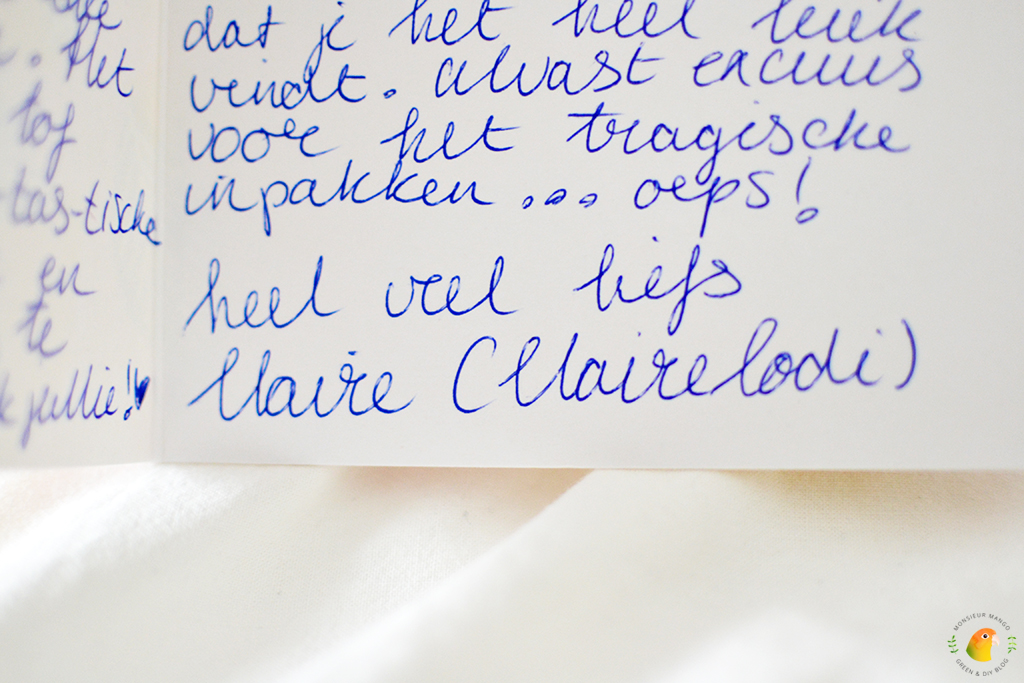 . Het
tof
tas-tische
en
te
jullie!
dat je het heel leuk
vindt. alvast excuus
voor het tragische
inpakken... oeps!
heel veel liefs
Claire (Clairelodi)
MONSIEUR MANGO
GREEN & DIY BLOG